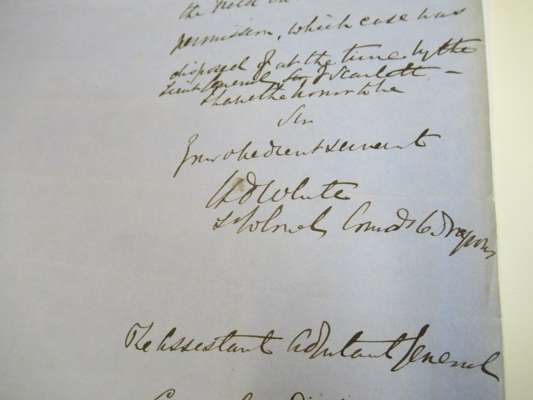 the field
permission, which case was
disposed of at the time by the
Lieut General Sir J Scarlett —
I have the honor to be
Sir
Your obedient servant
H D White
Lt Colonel Comdg 6 Dragoons
The Assistant Adjutant General